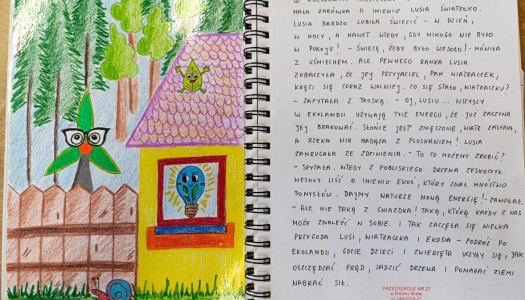 MAŁA ŻARÓWKA O IMIENIU LUSIA ŚWIATEŁKO.
LUSIA BARDZO LUBIŁA ŚWIECIĆ - W DZIEŃ,
W NOCY, A NAWET WTEDY, GDY NIKOGO NIE BYŁO
W POKOJU! - ŚWIECĘ, ŻEBY BYŁO WESOŁO! - MÓWIŁA
Z UŚMIECHEM. ALE PEWNEGO RANKA LUSIA
ZOBACZYŁA, ŻE JEJ PRZYJACIEL, PAN WIATRACZEK,
KRĘCI SIĘ CORAZ WOLNIEJ. CO SIĘ STAŁO, WIATRACZKU?
- ZAPYTAŁA Z TROSKĄ. - OJ, LUSIU... WSZYSCY
W EKOLANDII UŻYWAJĄ TYLE ENERGII, ŻE JUŻ ZACZYNA
JEJ BRAKOWAĆ. SŁOŃCE JEST ZMĘCZONE, WIATR ZASPAŁ,
A RZEKA NIE NADĄŻA Z PLUSKANIEM! LUSIA
ZAMRUGAŁA ZE ZDZIWIENIA. - TO CO MOŻEMY ZROBIĆ?
- SPYTAŁA. WTEDY Z POBLISKIEGO DRZEWA ZESKOCZYŁ
WESOŁY LIŚĆ O IMIENIU EKOŚ, KTÓRY ZNAŁ MNÓSTWO
POMYSŁÓW. DAJMY NATURZE NOWĄ ENERGIĘ! - ZAWOŁAŁ.
- ALE NIE TAKĄ Z GNIAZDKA! TAKĄ, KTÓRĄ KAŻDY Z NAS
MOŻE ZNALEŹĆ W SOBIE. I TAK ZACZĘŁA SIĘ WIELKA
PRZYGODA LUSI, WIATRACZKA I EKOSIA - PODRÓŻ PO
EKOLANDII, GDZIE DZIECI I ZWIERZĘTA UCZYŁY SIĘ, JAK
OSZCZĘDZAĆ PRĄD, SADZIĆ DRZEWA I POMAGAĆ ZIEMI
NABRAĆ SIŁ.
PRZEDSZKOLE NR 27